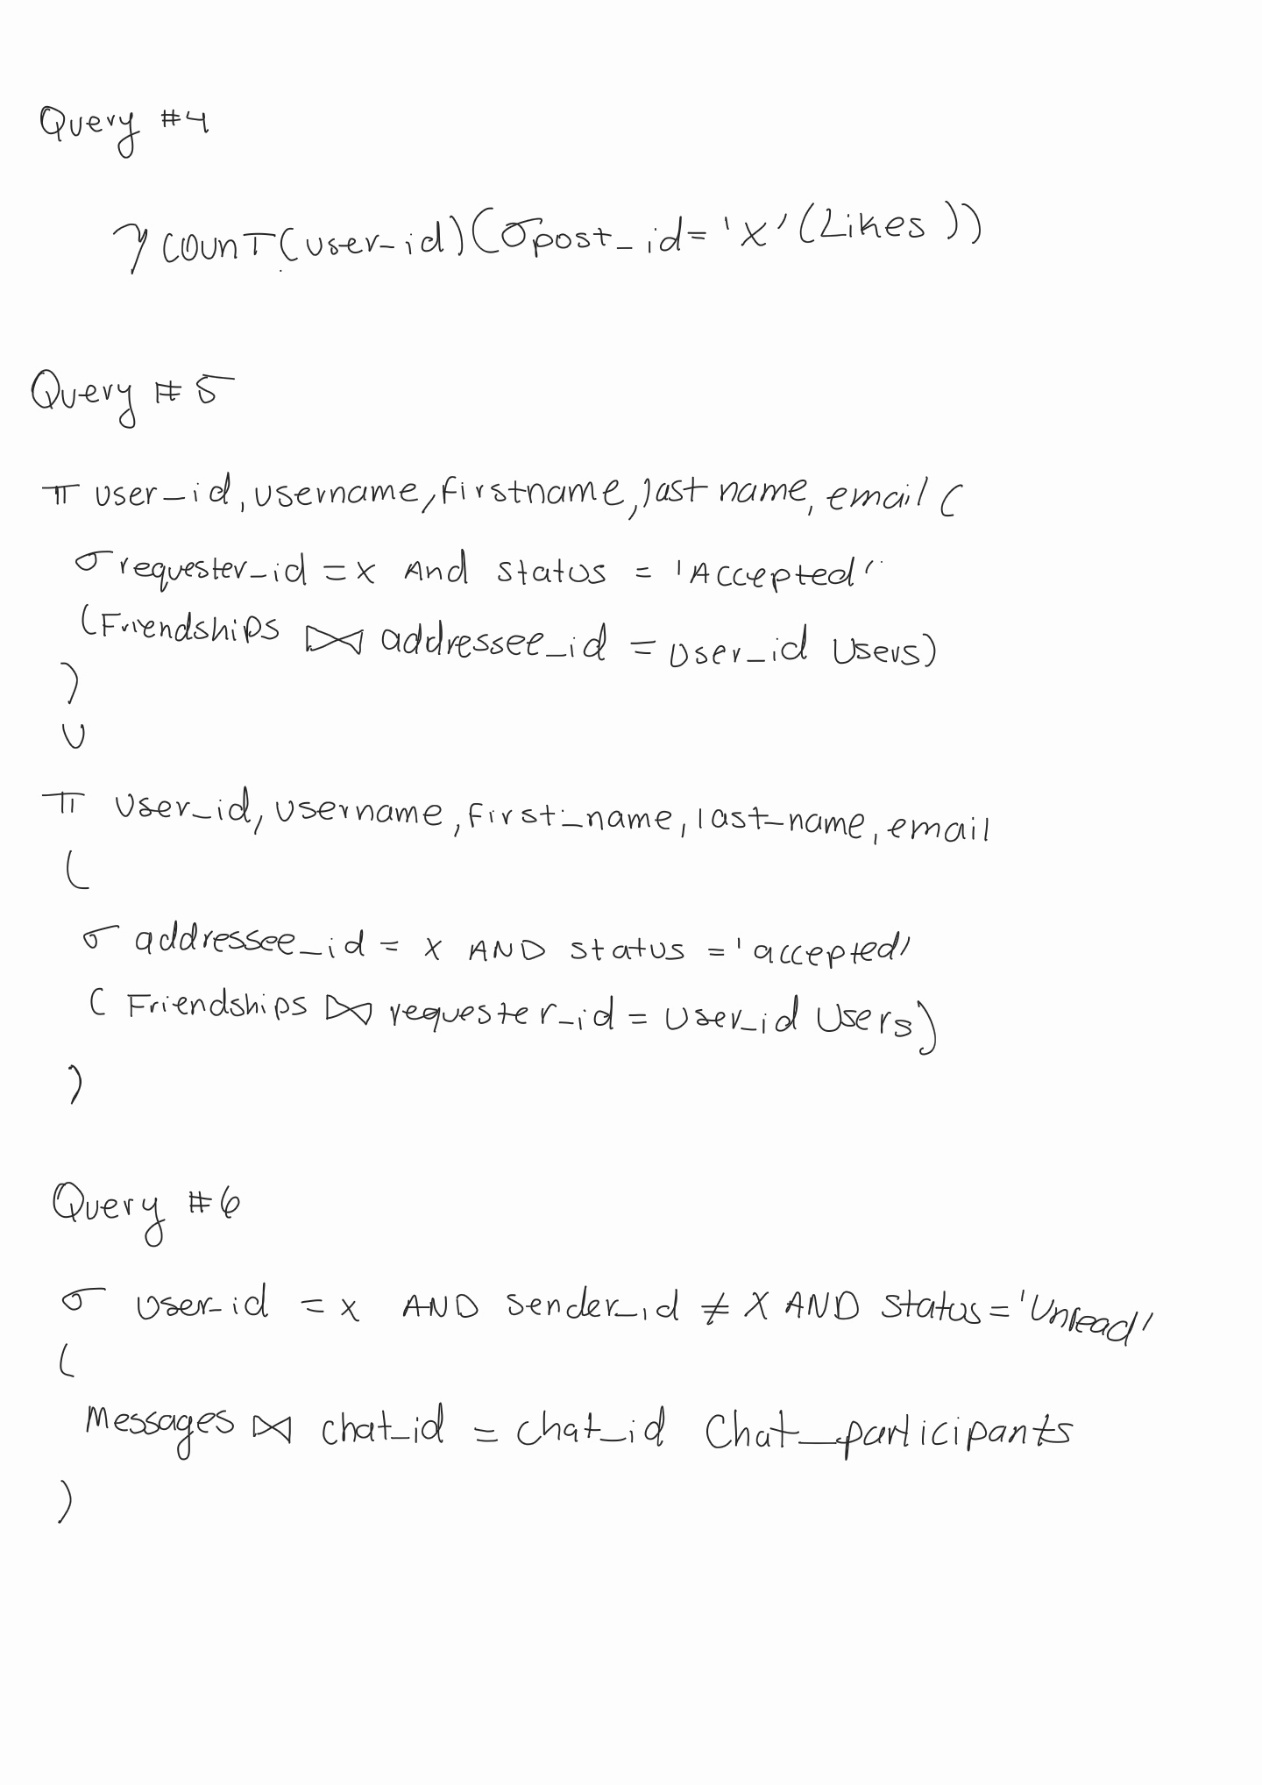 Query #4
γ COUNT(user_id)(σpost_id='X'(Likes))
Query #5
π user_id, username, firstname, last name, email (
σ requester_id = x And status = 'Accepted'
(Friendships ⋈ addressee_id = user_id Users)
)
∪
π user_id, username, first_name, last_name, email
(
σ addressee_id = x AND status = 'accepted'
( Friendships ⋈ requester_id = user_id Users)
)
Query #6
σ user_id = x AND sender_id ≠ X AND status = 'Unread'
(
Messages ⋈ chat_id = chat_id Chat_participants
)